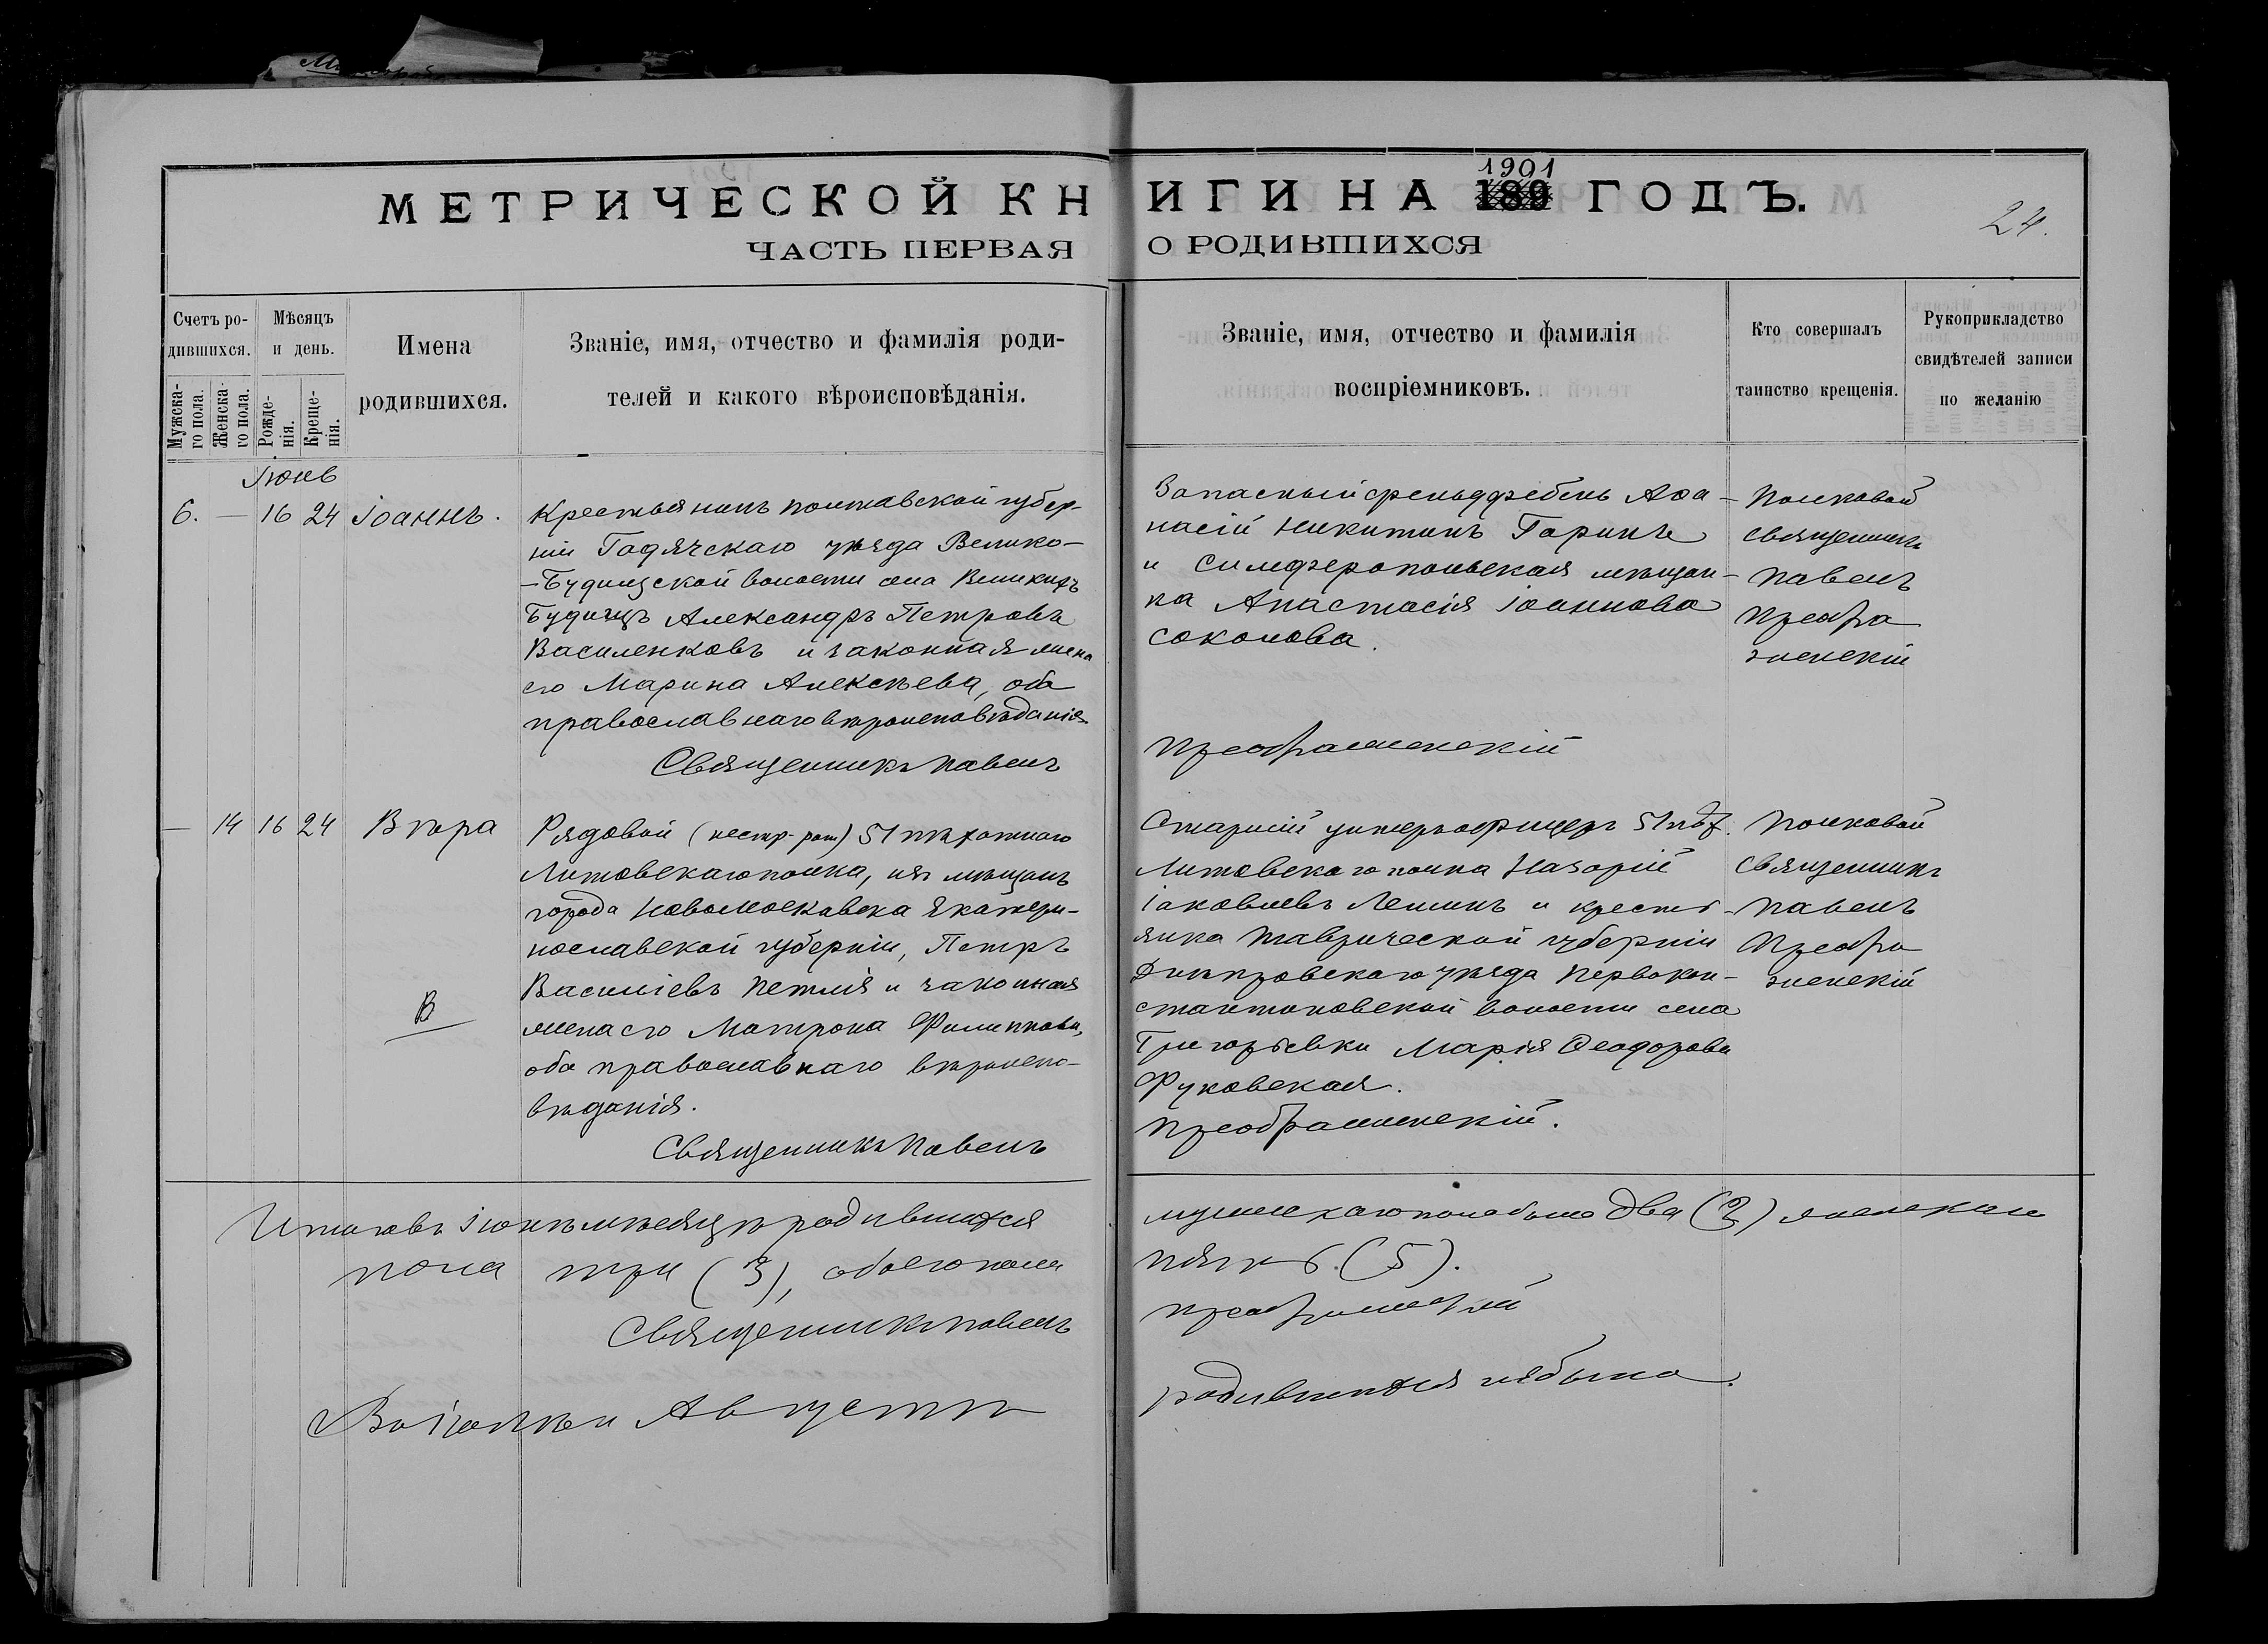 МЕТРИЧЕСКОЙ КНИГИ НА 1901 ГОДЪ.
ЧАСТЬ ПЕРВАЯ О РОДИВШИХСЯ
24.
Счетъ ро-
дившихся.
Мужска-
го пола.
Женска-
го пола.
Мѣсяцъ
и день.
Рожде-
нія.
Креще-
нія.
Имена
родившихся.
Званіе, имя, отчество и фамилія роди-
телей и какого вѣроисповѣданія.
Званіе, имя, отчество и фамилія
воспріемниковъ.
Кто совершалъ
таинство крещенія.
Рукоприкладство
свидѣтелей записи
по желанію
Іюнь
6. — 16 24 Іоаннъ.
Крестьянинъ Полтавской губер-
ніи Гадячскаго уѣзда Велико-
-Будищской волости села Великихъ
Будищъ Александръ Петровъ
Василенковъ и законная жена
его Марина Алексѣева, оба
православнаго вѣроисповѣданія
Священникъ Павелъ
Запасный фельдфебель Аѳа-
насій Никитинъ Гаринъ
и Симферопольская мѣщан-
ка Анастасія Іоаннова
Соколова.
Преображенскій
Полковой
священникъ
Павелъ
Преобра
женскій
— 14 16 24 Вѣра
В
Рядовой (нестр. рот) 51 пѣхотнаго
Литовскаго полка, изъ мѣщанъ
города Новомосковска Екатери-
нославской губерніи, Петръ
Василіевъ Петля и законная
жена его Матрона Филиппова,
оба православнаго вѣроиспо-
вѣданія.
Священникъ Павелъ
Старшій унтеръ-офицеръ 51 пѣх.
Литовскаго полка Назарій
Іаковлевъ Лешинъ и кресть-
янка Таврической губерніи
Днѣпровскаго уѣзда Первокон-
стантиновской волости села
Григорьевки Марія Ѳеодорова
Фуковская.
Преображенскій.
Полковой
Священникъ
Павелъ
Преобра
женскій
Итого въ іюнѣ мѣсяцѣ родившихся мужскаго пола было два (2) женскаго
пола три (3), обоего пола пять. (5).
Священникъ Павелъ Преображенскій
Въ іюлѣ и Августѣ родившихся не было.